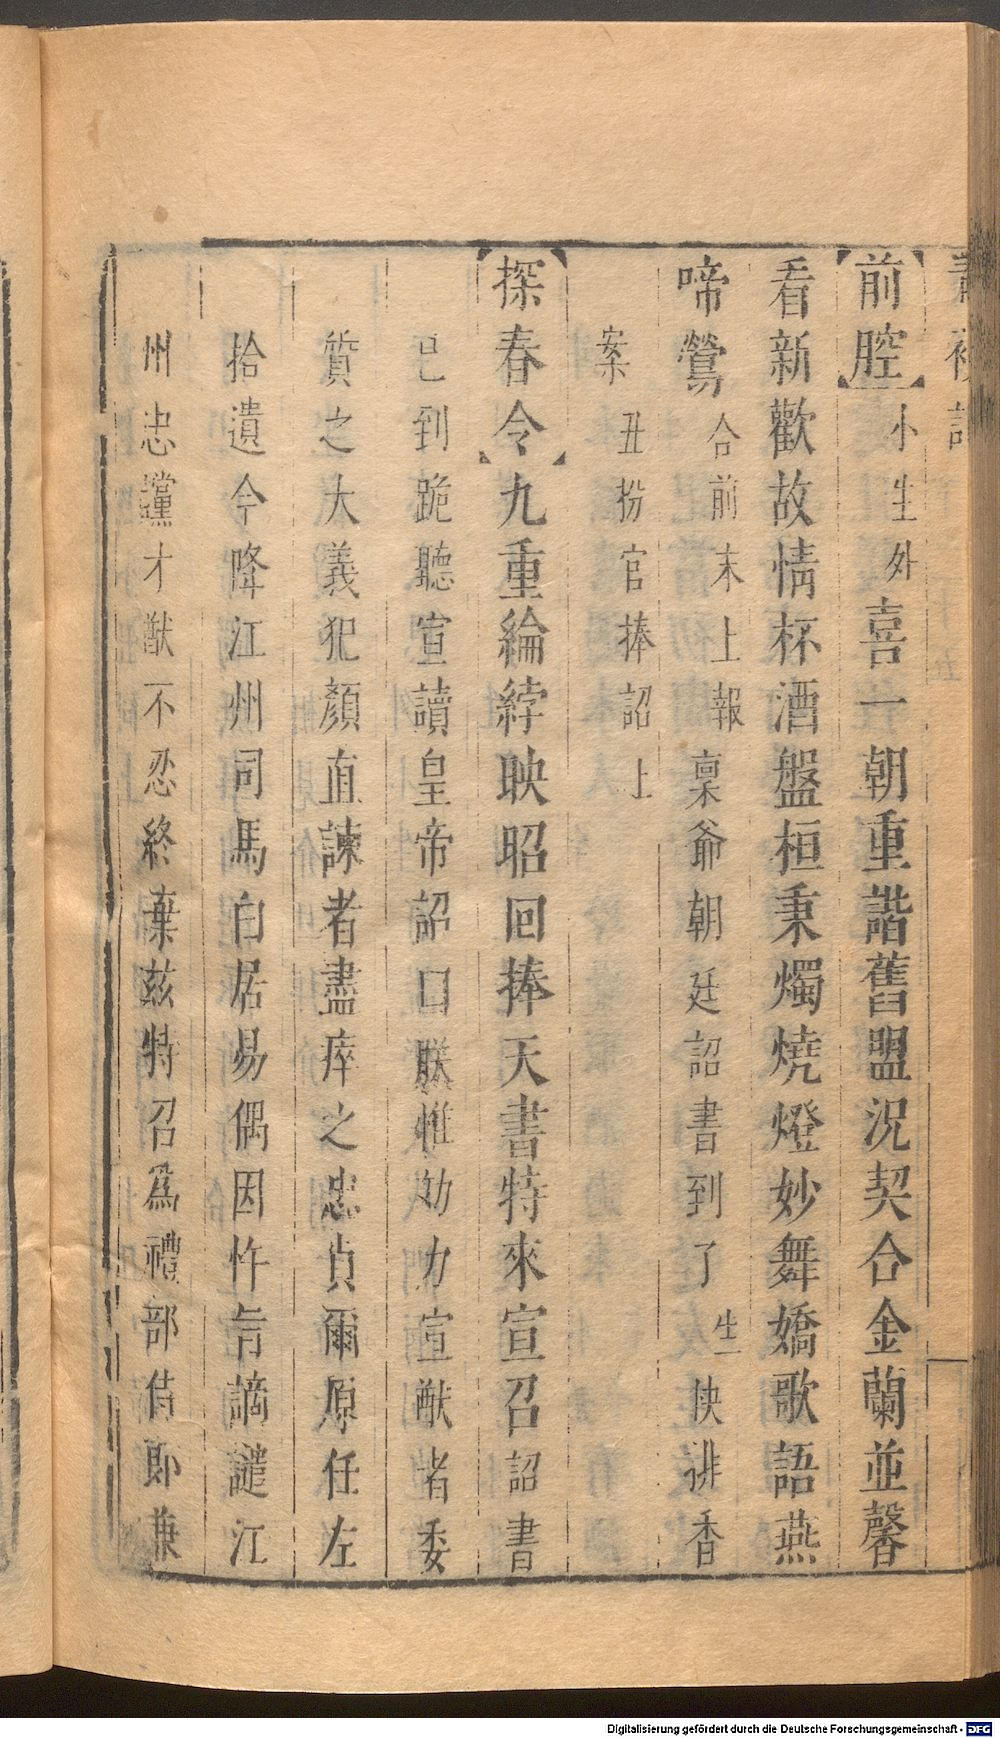 青衫記
【前腔】小生外喜一朝重諧舊盟況契合金蘭並馨
看新歡故情杯酒盤桓秉燭燒燈妙舞嬌歌語燕
啼鶯合前末上報稟爺朝廷詔書到了生快排香
案丑扮官捧詔上
【探春令】九重綸綍映昭回捧天書特來宣召詔書
已到跪聽宣讀皇帝詔曰朕惟効力宣猷者委
質之大義犯顏直諫者盡瘁之忠貞爾原任左
拾遺今降江州司馬白居易偶因忤旨謫譴江
州忠讜才猷不忍終棄兹特召爲禮部侍郎兼
Digitalisierung gefördert durch die Deutsche Forschungsgemeinschaft - DFG